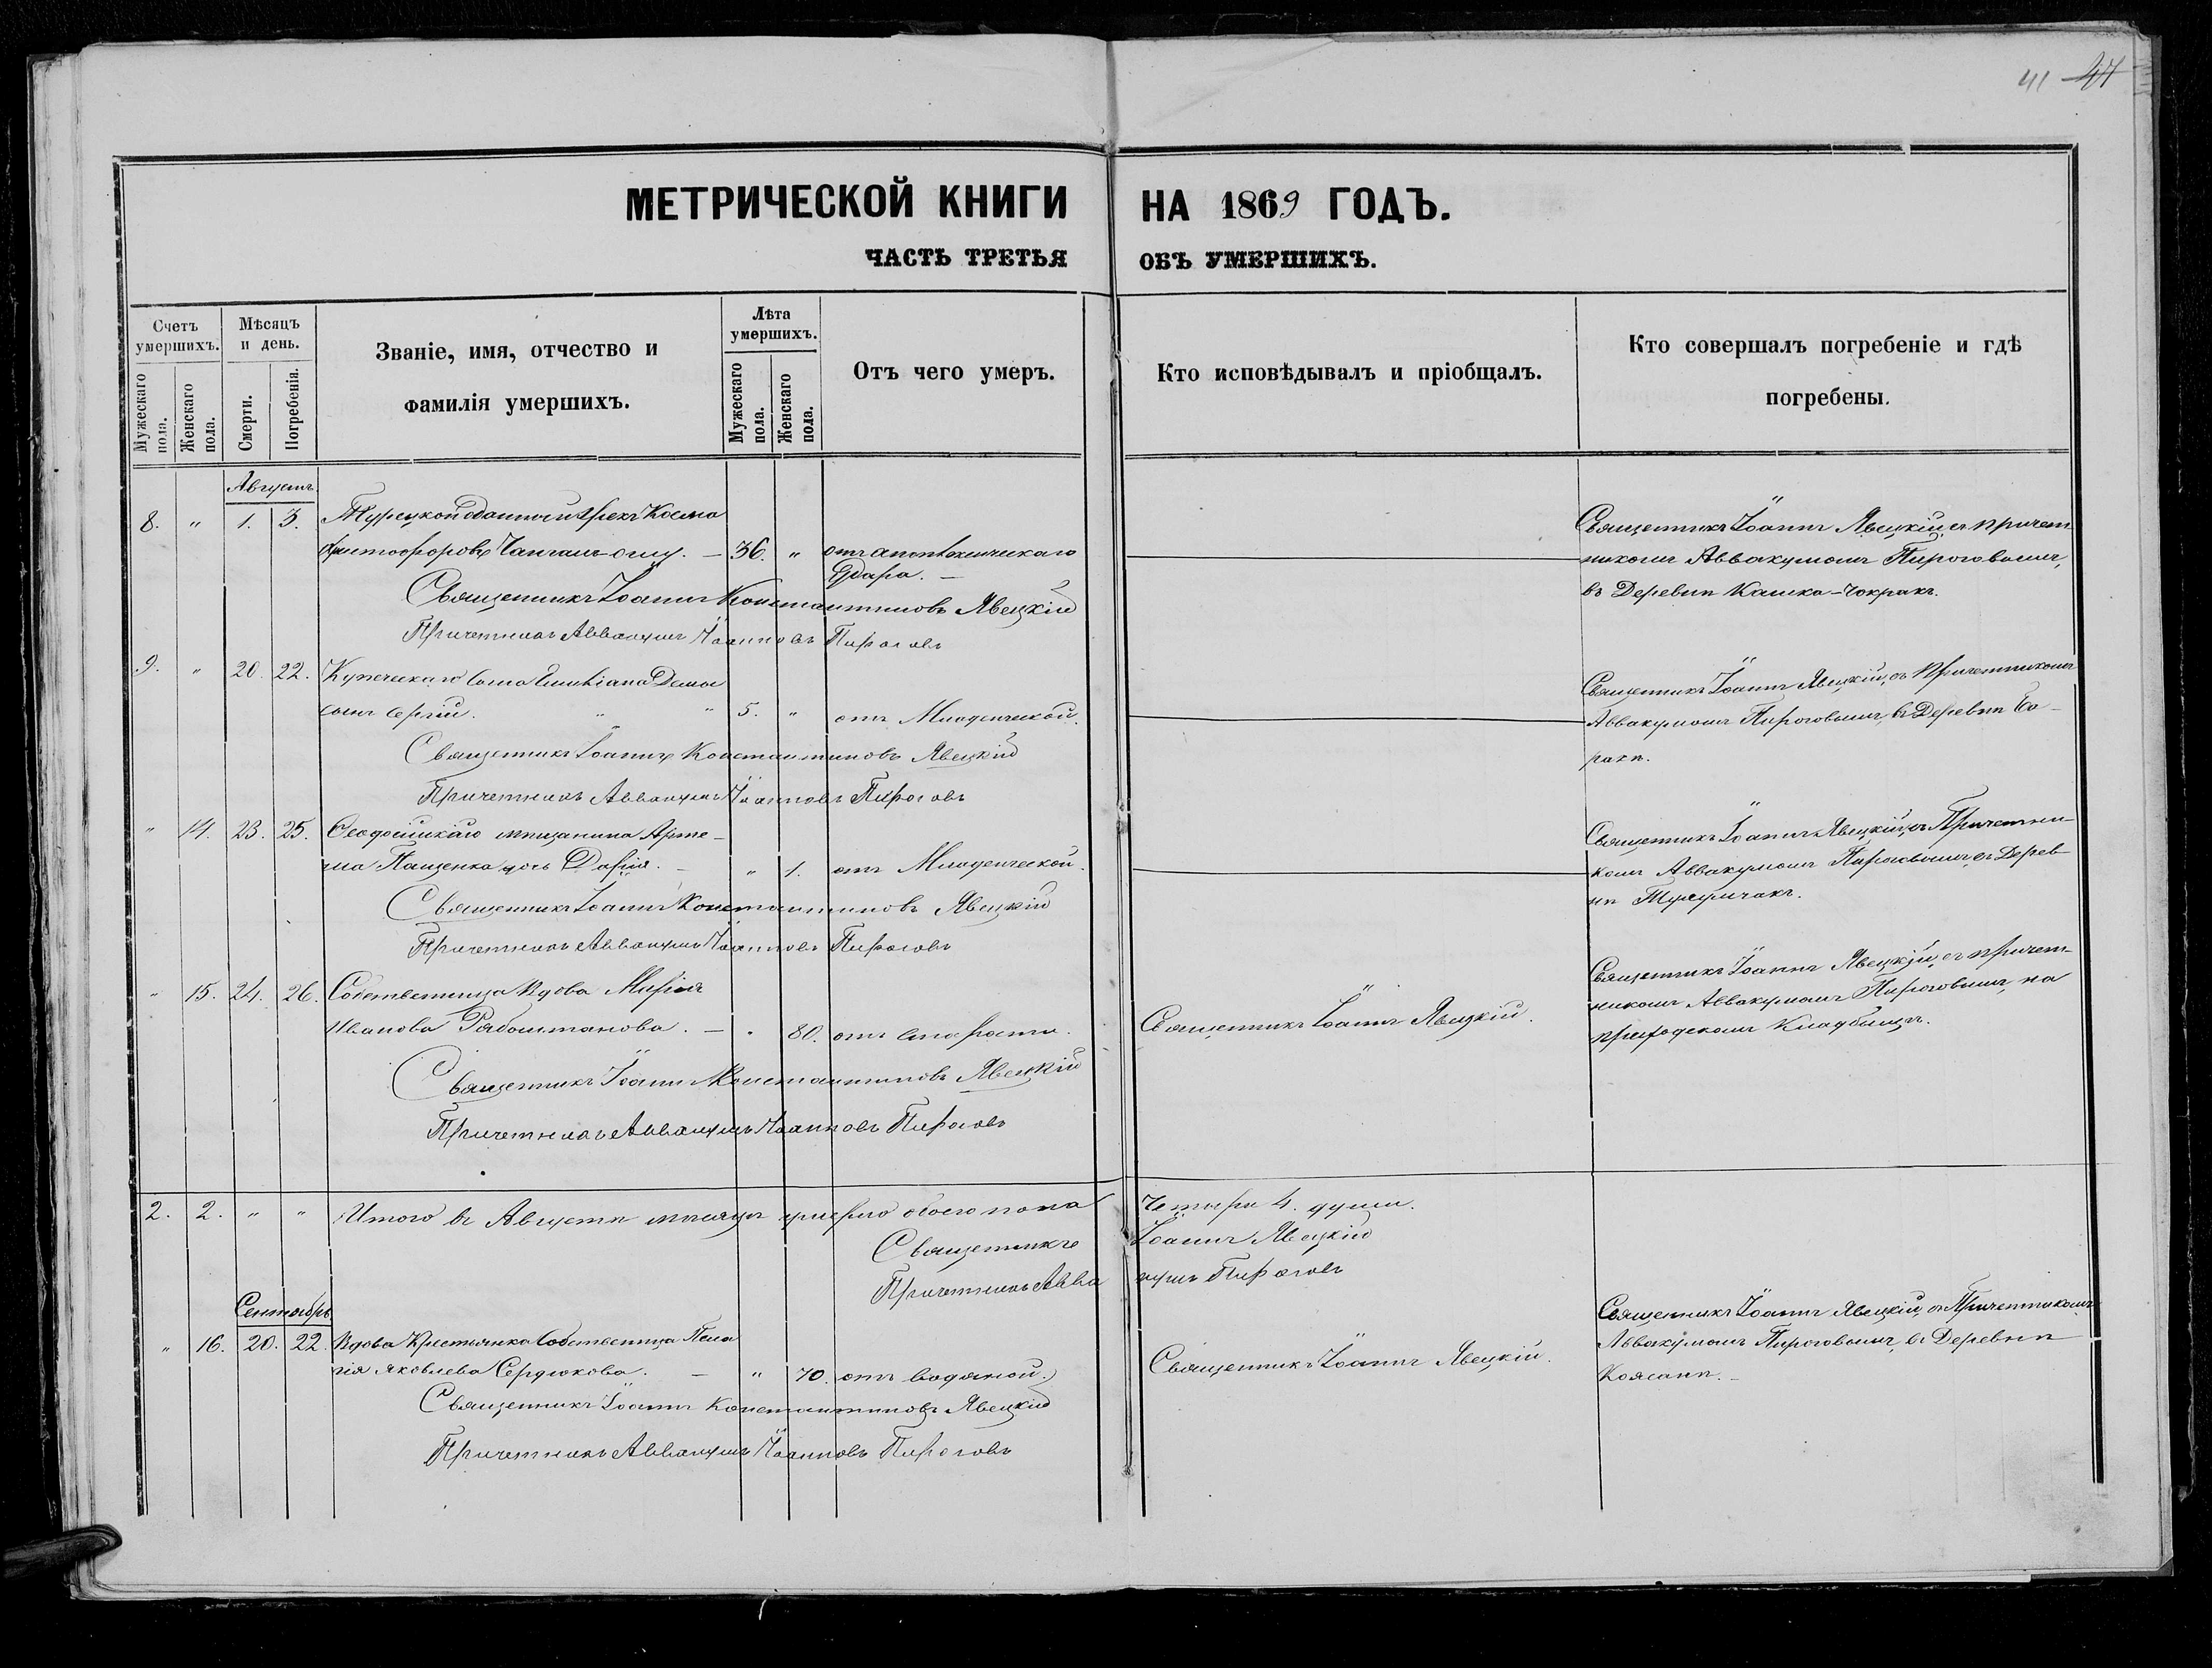 41 47
МЕТРИЧЕСКОЙ КНИГИ НА 1869 ГОДЪ.
ЧАСТЬ ТРЕТЬЯ ОБЪ УМЕРШИХЪ.
Счетъ умершихъ.
Мужескаго пола.
Женскаго пола.
Мѣсяцъ и день.
Смерти.
Погребенія.
Званіе, имя, отчество и
фамилія умершихъ.
Лѣта умершихъ.
Мужескаго пола.
Женскаго пола.
Отъ чего умеръ.
Кто исповѣдывалъ и пріобщалъ.
Кто совершалъ погребеніе и гдѣ
погребены.
Августъ.
8. " 1. 3. Турецкоподанный Грекъ Косма
Христофоровъ — 36. " отъ апоплексическаго
Удара. —
Священникъ Іоаннъ Явецкій, съ причет-
никомъ Аввакумомъ Пироговымъ,
въ Деревнѣ Кашка-Чокракъ.
Священникъ Іоаннъ Константиновъ Явецкій
Причетникъ Аввакумъ Іоанновъ Пироговъ
9. " 20. 22. Купеческаго сына Демо
сынъ Сергій. " " 5. " отъ Младенческой.
Священникъ Іоаннъ Явецкій, съ Причетникомъ
Аввакумомъ Пироговымъ, въ Деревнѣ Са-
рахѣ.
Священникъ Іоаннъ Константиновъ Явецкій
Причетникъ Аввакумъ Іоанновъ Пироговъ
" 14. 23. 25. Ѳеодосійскаго мѣщанина Арте-
ма Пащенка дочь Дарія. — " 1. отъ Младенческой.
Священникъ Іоаннъ Явецкій, съ Причетни-
комъ Аввакумомъ Пироговымъ, въ Дерев-
нѣ
Священникъ Іоаннъ Константиновъ Явецкій
Причетникъ Аввакумъ Іоанновъ Пироговъ
" 15. 24. 26. Собственница Вдова Марія
Иванова Рябоштанова. — " 80. отъ старости.
Священникъ Іоаннъ Явецкій.
Священникъ Іоаннъ Явецкій, съ причет-
никомъ Аввакумомъ Пироговымъ, на
приходскомъ Кладбищѣ.
Священникъ Іоаннъ Константиновъ Явецкій
Причетникъ Аввакумъ Іоанновъ Пироговъ
2. 2. " " Итого въ Августѣ мѣсяцѣ умерло обоего пола Четыри 4. души.
Священникъ Іоаннъ Явецкій
Причетникъ Аввакумъ Пироговъ
Сентябрь
" 16. 20. 22. Вдова Крестьянка Собственница Пела
гія Яковлева Сердюкова. — " 70. отъ водяной.
Священникъ Іоаннъ Явецкій.
Священникъ Іоаннъ Явецкій, съ Причетникомъ
Аввакумомъ Пироговымъ, въ Деревнѣ
Коясанѣ. —
Священникъ Іоаннъ Константиновъ Явецкій
Причетникъ Аввакумъ Іоанновъ Пироговъ